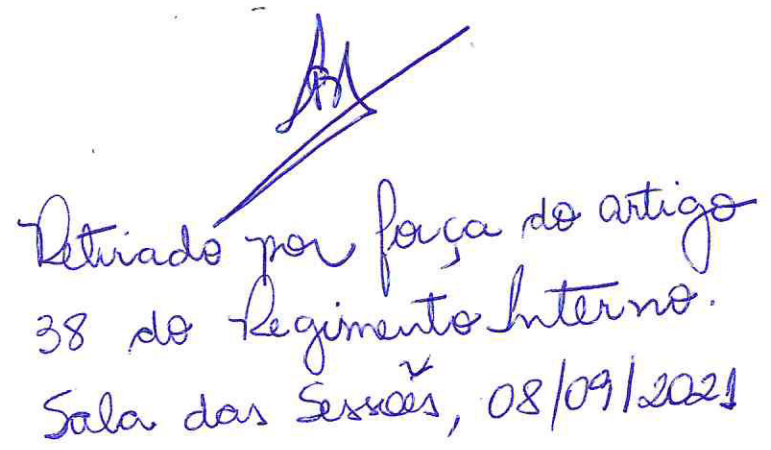 Retirado por força do artigo
38 do Regimento Interno.
Sala das Sessões, 08/09/2021